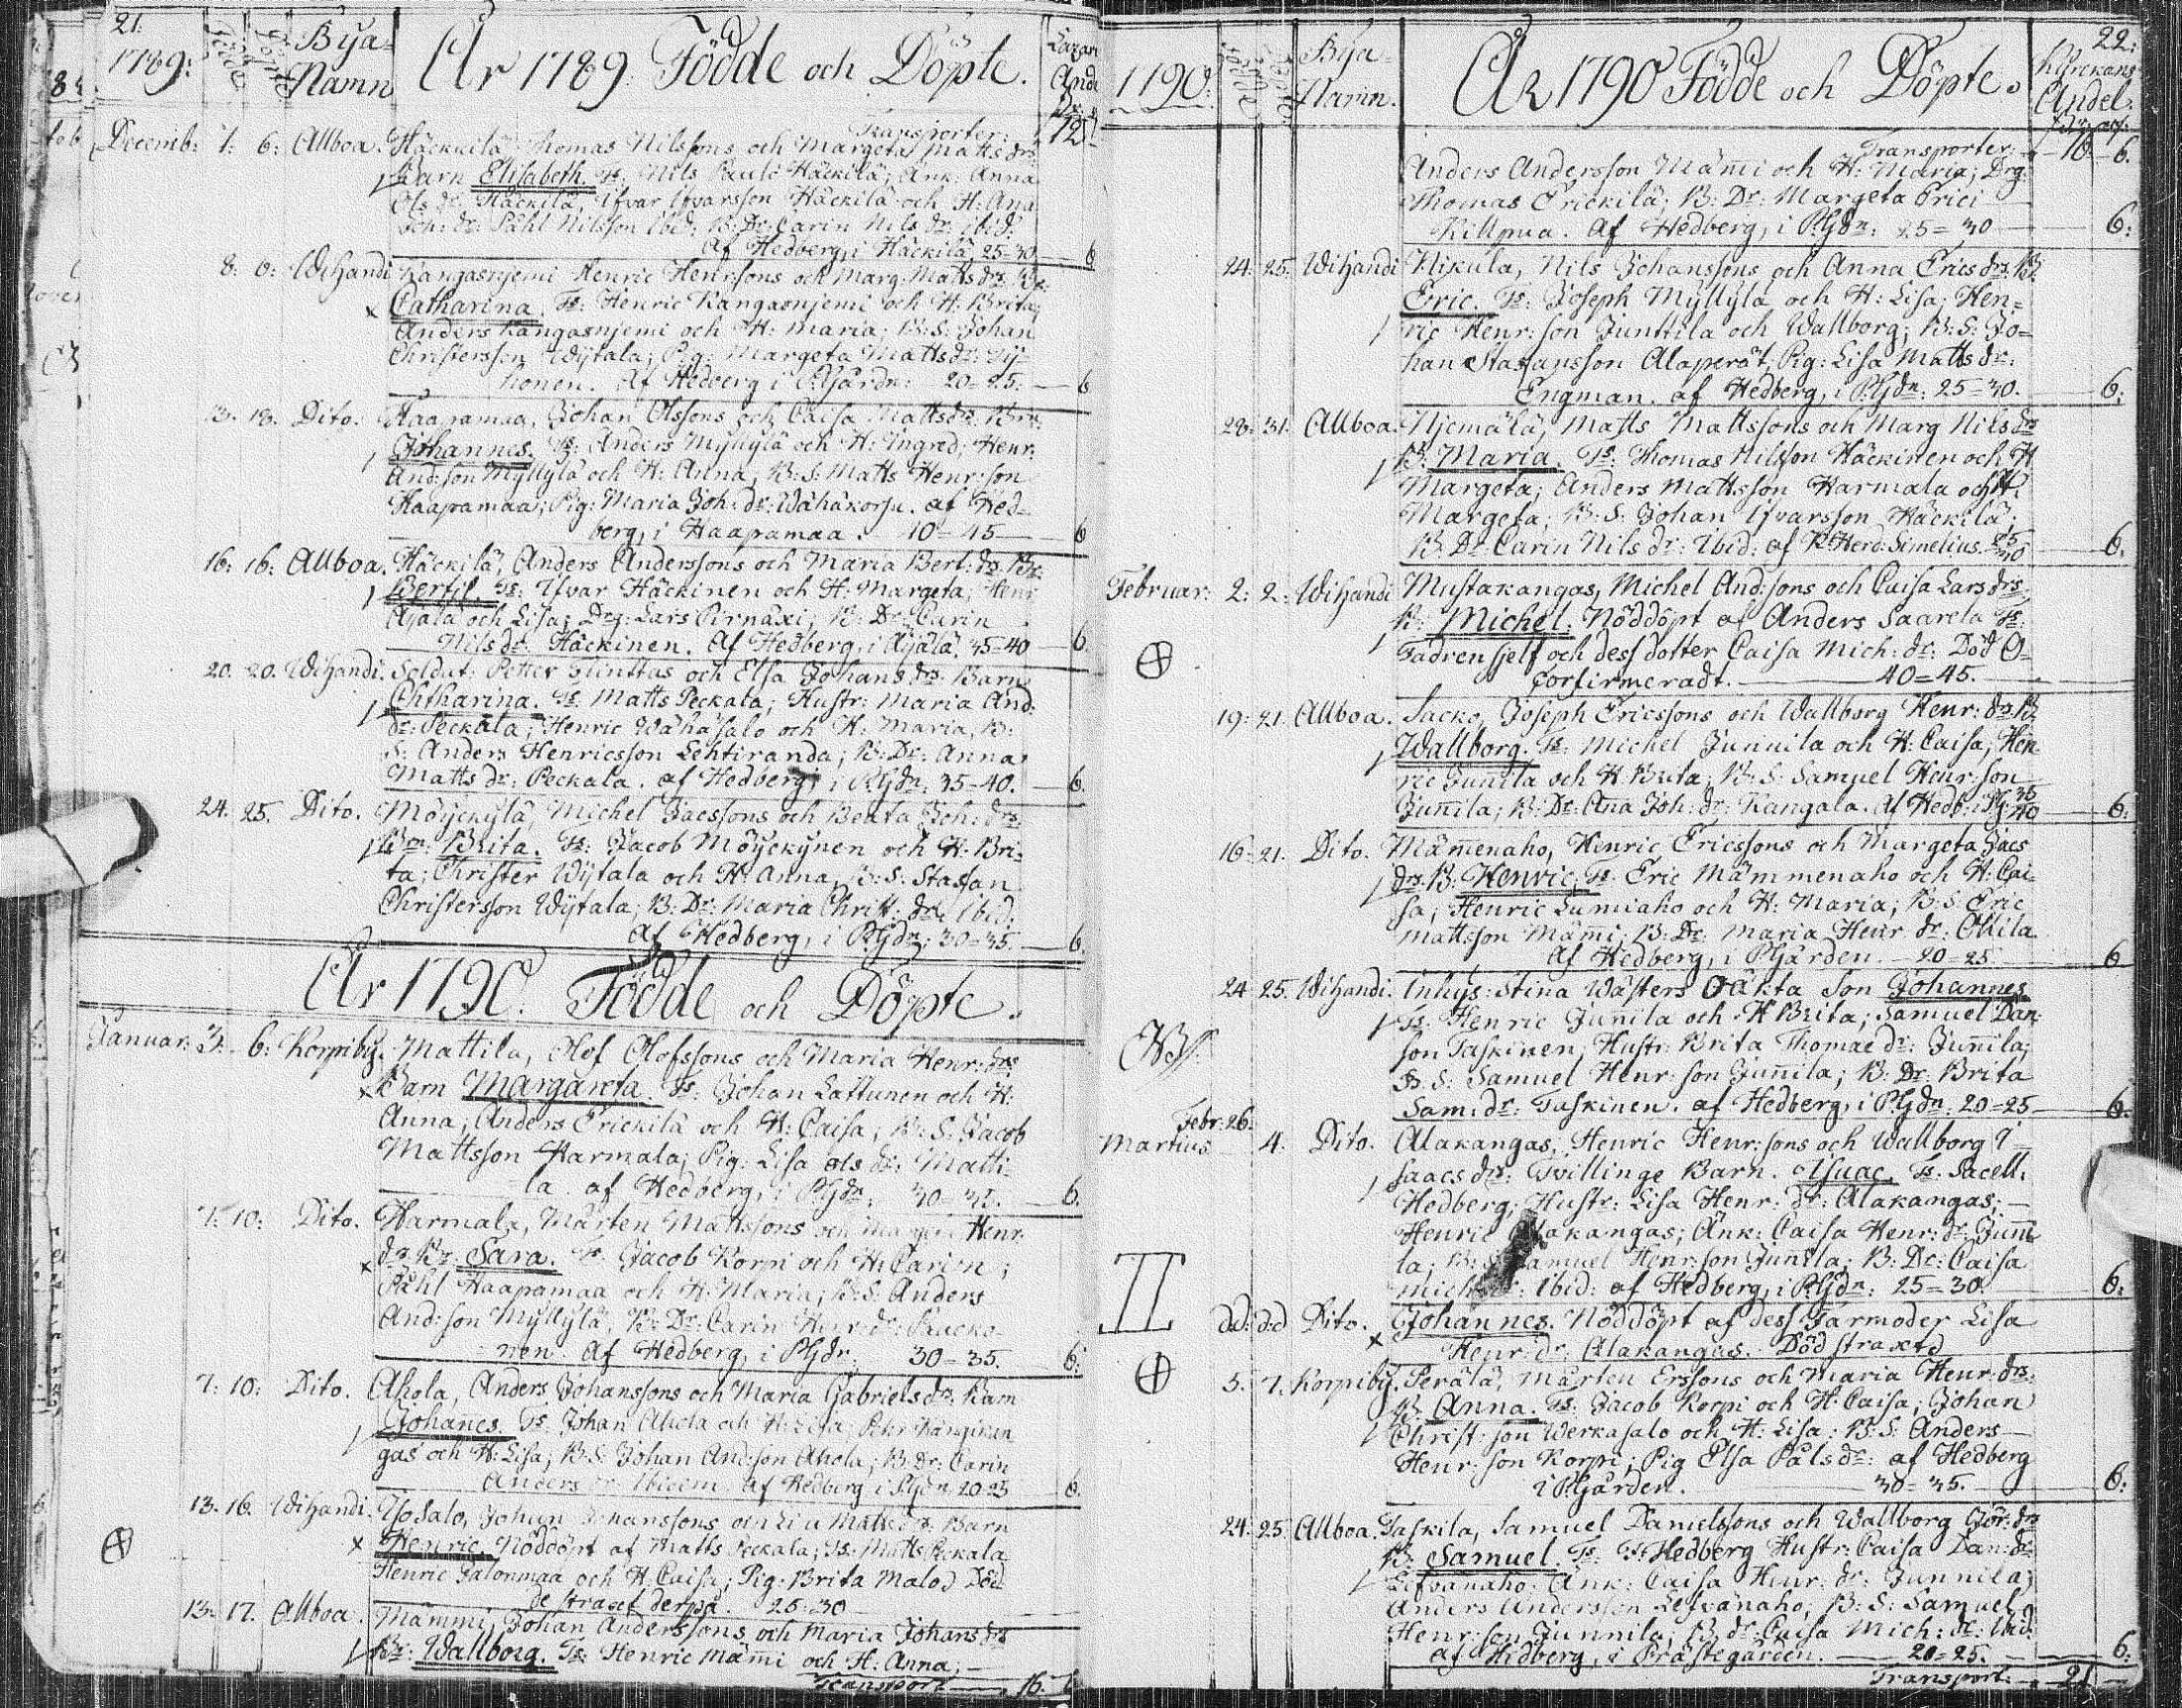 21.
1789:
Födde
Döpte
Bya-
Namn
År 1789. Födde och Döpte.
Transporter: 12
Decemb: 7: 6: Allboa. Häckilä Thomas Nilssons och Margeta Matts drs
Barn Elisabeth. Ts: Nils Påuls Häckilä; Änk: Anna
Ols dr: Häckilä, Ifvar Ifvarsson Häckilä och H: Ana
Joh: dr: Påhl Nilsson ibid; B: Dr: Carin Nils dr: ibid:
af Hedberg, i Häckilä 25=30 6
8: 6: Wihandi Kangasnjemi Henric Henr:sons och Marg: Matts drs Br:
Catharina. Ts: Henric Kangasnjemi och H: Brita;
Anders Kangasnjemi och H: Maria; B: S: Johan
Christersson Wijtala; Pig: Margeta Matts dr:
honen. Af Hedberg i P.Gårdn: 20=25. 6
13: Dito. Haapamaa, Johan Olssons och Caisa Matts drs Brn:
Johannes. Ts: Anders Myllylä och H: Ingred; Henr:
And:son Myllylä och H: Anna, B: S: Matts Henr:son
Haapamaa; Pig: Maria Joh: dr: Wähäkorju. af Hed-
berg, i Haapamaa. 10=45 6
16: 16: Allboa. Häckilä, Anders Anderssons och Maria Bert: drs Br:
Bertil. Ts: Ifvar Häckinen och H: Margeta; Henr
Äijälä och Lisa; Drg: Lars Pirnäxi; B: Dr: Carin
Nils dr: Häckinen. Af Hedberg, i Äijälä. 35=40 6.
20. 20. Wihandi. Soldat: Petter Flinttas och Elsa Johans drs Barn
Chtharina. Ts: Matts Peckala; Hustr: Maria And:
dr: Peckala; Henric Wähäsalo och H: Maria, B:
S: Anders Henricsson Lehtiranda; B: Dr: Anna
Matts dr: Peckala. af Hedberg, i P.Gdn: 35=40. 6.
24. 25. Dito. Möyckylä, Michel Jacssons och Beata Joh: drs:
Brn: Brita. Ts: Jacob Möyckynen och H: Bri-
ta; Christer Wijtala och H: Anna, B: S: Staffan
Christersson Wijtala; B: Dr: Maria Christ: dr: ibid:
af Hedberg, i P.Gdn: 30=35. 6.
År 1790. Födde och Döpte.
Januar: 3. 6: Korpiby. Mattila, Olof Olofssons och Maria Henr: drs
Barn Margareta. Ts: Johan Lattunen och H:
Anna; Anders Erickilä och H: Caisa; B: S: Jacob
Mattsson Karmala; Pig: Lisa Ols dr: Matti-
la. af Hedberg, i P.Gdn: 30=35. 6.
7: 10: Dito. Harmala, Mårten Mattssons och Henr:
drs Br: Sara. Ts: Jacob Korpi och H: Carin;
Påhl Haapamaa och H: Maria; B: S: Anders
And:son Myllylä, B: Dr: Carin Henr: dr:
nen. Af Hedberg, i P.Gdn: 30=35. 6:
7: 10: Dito. Ahola, Anders Johanssons och Maria Gabriels drs Barn
Johanes. Ts: Johan Ahola och H: Lisa; Petr Kangihan
gas och H: Lisa; B: S: Johan And:son Ahola; B: Dr: Carin
Anders dr: Ibidem af Hedberg i P.Gdn 20=25 6.
13. 16. Wihandi. Isosalo, Johan Johanssons och Matts drs: Barn
Henric. Nöddöpt af Matts Peckala; Ts: Matts Peckala
Henric Jalonmaa och H. Caisa; Pig: Brita Malo Död
de straxt derpå. 25=30
13. 17. Allboa. Mämmi, Johan Anderssons och Maria Johans drs
Br: Wallborg. Ts: Henric Mämi och H: Anna;
Transport 16. 6
22:
1790:
Födde
Döpte
Bya-
Namn.
År 1790 Födde och Döpte.
Kyrckans
Andel.
Transporter: 16. 6.
Anders Andersson Mämi och H: Maria; Drg:
Thomas Erickilä; B: Dr: Margeta Erici
Killpua. Af Hedberg, i P.Gdn: 25=30 6:
24: 25. Wihandi Nikula, Nils Johanssons och Anna Erics drs: B:
Eric. Ts: Joseph Myllylä och H: Lisa; Hen-
ric Henr:son Junttila och Wallborg; B: S: Jo-
han Staffansson Alaperät, Pig: Lisa Matts dr:
Engman. af Hedberg, i P.Gdn: 25=30. 6:
28: 31: Allboa. Njemälä, Matts Mattssons och Marg Nils drs
B: Maria. Ts: Thomas Nilsson Häckinen och H
Margeta; Anders Mattsson Harmala och H:
Margeta; B: S: Johan Ifvarsson Häckilä;
B: Dr: Carin Nils dr: Ibid: af K.Herd: Simelius. 6.
Februar: 2: 2: Wihandi Mustakangas, Michel And:sons och Caisa Lars drs
B: Michel. Nöddöpt af Anders Saarela Ts:
Fadren sjelf och dess dotter Caisa Mich: dr: Död O-
corfirmeradt. 40=45.
19: 21 Allboa. Sacko, Joseph Ericssons och Wallborg Henr: drs B:
Wallborg. Ts: Michel Junnila och H: Caisa; Hen
ric Junila och H Brita; B: S: Samuel Henr:son
Junila; B: Dr: Ana Joh: dr: Kangala. Af Hedb: i P.G: 35 40 6:
16: 21. Dito. Mämenaho, Henric Ericssons och Margeta Jacs
drs B: Henric. Ts: Eric Mämmenaho och H: Cai-
sa; Henric Lumiaho och H: Maria; B: S: Eric
Mattsson Mämi; B: Dr: Maria Henr dr: Ollila
Af Hedberg, i P.Gården. 20=25. 6
24 25. Wihandi. Inhys: Stina Wästers Oäkta Son Johannes
Ts: Henric Junila och H Brita; Samuel Dan:
son Taskinen, Hustr: Brita Thomae dr: Junila;
B: S: Samuel Henr:son Junila; B: Dr: Brita
Sam: dr: Taskinen. af Hedberg, i P.Gdn: 20=25 6:
Febr: 26:
Martius 4. Dito. Alakangas, Henric Henr:sons och Wallborg I-
saacs drs: Tvillinge Barn. Isaac. Ts: Sacell:
Hedberg; Hustr: Lisa Henr: dr: Alakangas;
Henric Alakangas; Änk: Caisa Henr: dr: Juni
la; B: S: Samuel Henr:son Junila; B: Dr: Caisa
Mich: dr: Ibid: af Hedberg, i P.Gdn: 25=30. 6:
II
dd: d:d Dito. Johannes. Nöddöpt af dess Farmoder Lisa
Henr: dr: Alakangas. Död straxt
5. 7. Korpiby. Perälä, Mårten Erssons och Maria Henr: drs:
B: Anna. Ts: Jacob Korpi och H: Caisa; Johan
Christ:son Werkasalo och H: Lisa; B: S: Anders
Henr:son Korpi; Pig Elsa Påls dr: af Hedberg
i P.Gården. 30=35. 6:
24: 25 Allboa. Taskila, Samuel Danielssons och Wallborg Gör: drs
B: Samuel. Ts: Hedberg Hustr: Caisa Dan: dr
Leifvänaho. Änk: Caisa Henr: dr: Junnila;
Anders Andersson Leifvänaho; B: S: Samuel
Henr:son Junnila; B: dr: Caisa Mich: dr: ibid:
af Hedberg, i Prästegården. 20=25. 6:
Transport: 21